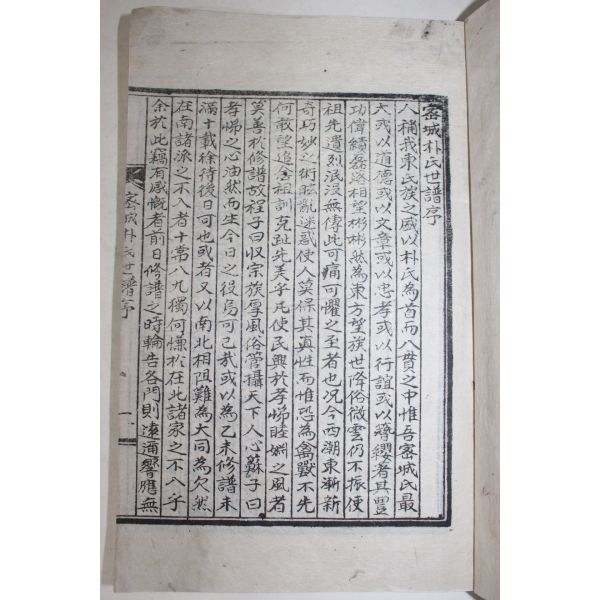 密城朴氏世譜序
人稱我東氏族之盛以朴氏為首而八貫之中惟吾密城氏最
大或以道德或以文章或以忠孝或以行誼或以簪纓著其豊
功偉績磊落相望彬彬然為東方望族世降俗微雲仍不振使
祖先遺烈泯沒無傳此可痛可懼之至者也况今西潮東漸新
奇巧妙之術眩亂迷惑使人莫保其真性而惟恐為禽獸不先
何敢望追念祖訓克趾先美乎凡使民興於孝悌睦婣之風者
莫善於修譜故程子曰収宗族厚風俗管攝天下人心蘇子曰
孝悌之心油然而生今日之役烏可已哉或以為乙未修譜未
滿十載徐待後日可也或者又以南北相阻難為大同為欠然
在南諸派之不入者十常八九獨何慊於在此諸家之不入乎
余於此竊有感慨者前日修譜之時輪告各門則遠邇響應無
密城朴氏世譜序
一